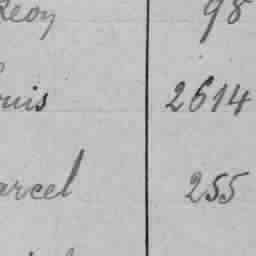 98
uis 2614
arcel 255